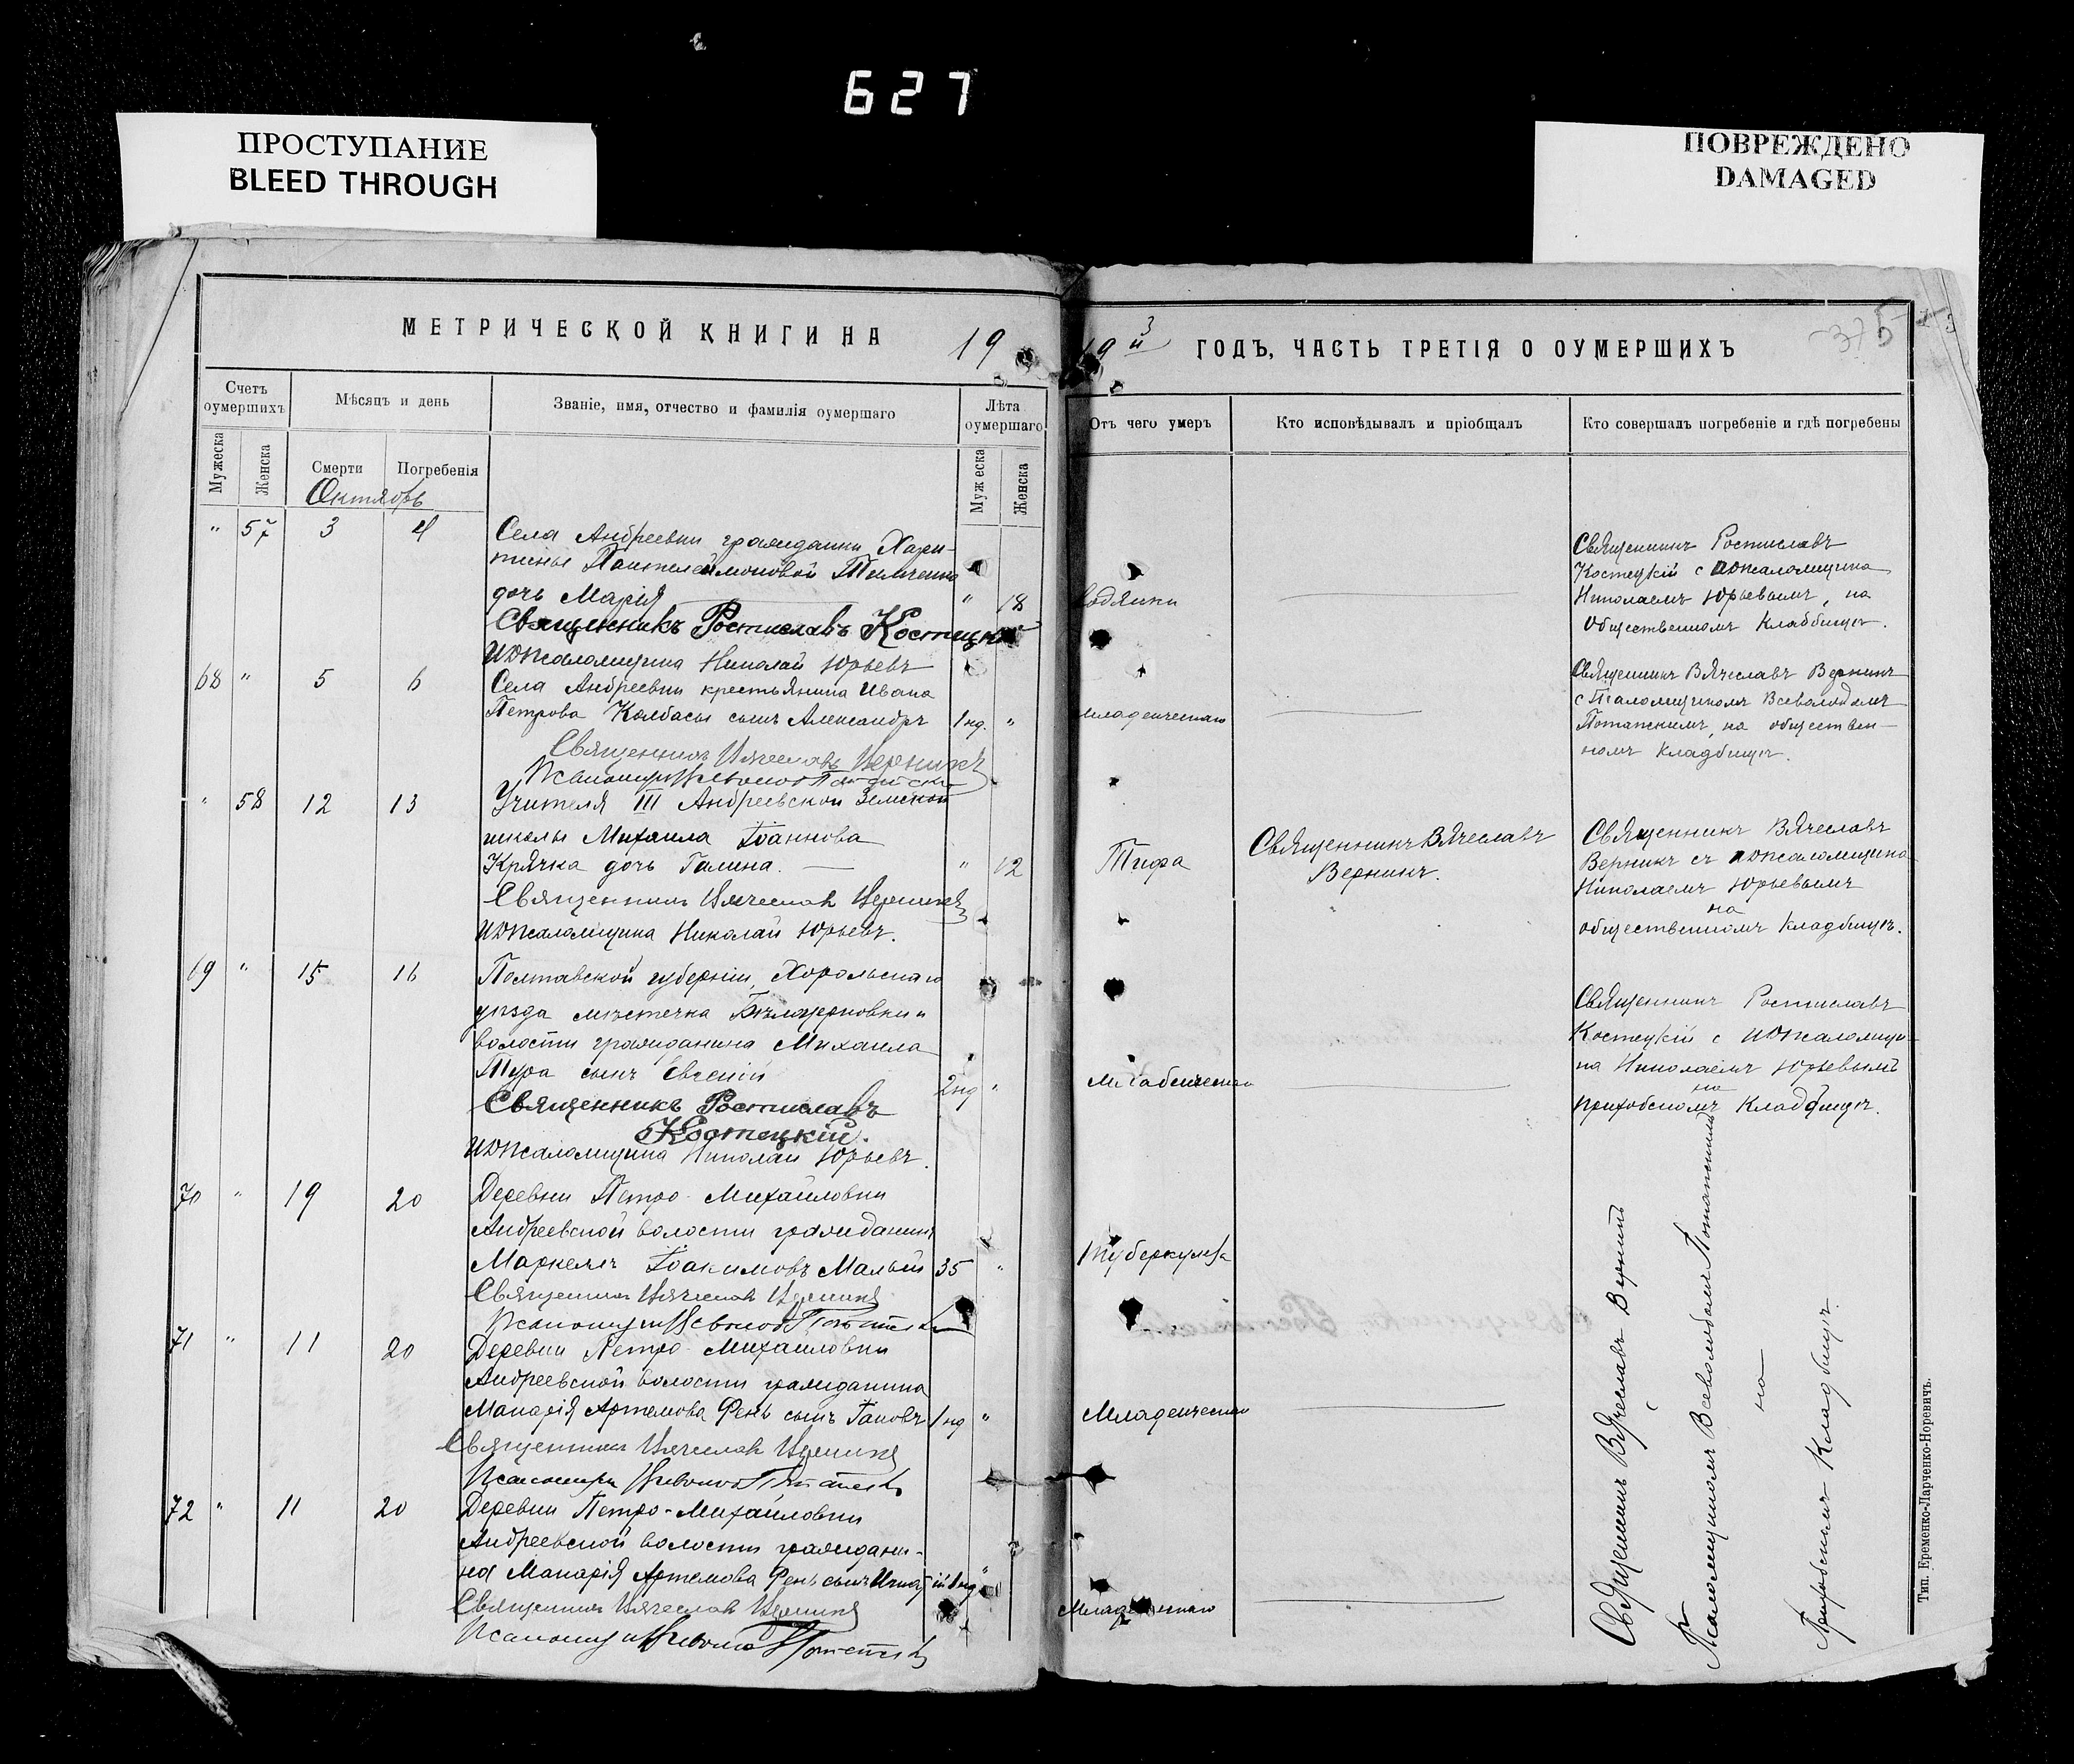 627
ПРОСТУПАНИЕ
BLEED THROUGH
ПОВРЕЖДЕНО
DAMAGED
МЕТРИЧЕСКОЙ КНИГИ НА 19
Счетъ оумершихъ
Мѣсяцъ и день
Званіе, имя, отчество и фамилія оумершаго
Лѣта оумершаго
Мужеска
Женска
Смерти
Погребенія
Муж еска
Женска
Октябрь
" 57 3 4 Села Андреевки гражданки Хари-
тины Пантелеймоновой
дочь Марія " 18
Священникъ Ростиславъ Костецкій
И д псаломщика Николай Юрьевъ
68 " 5 6 Села Андреевки крестьянина Ивана
Петрова Колбасы сынъ Александръ 1 нд. "
Священникъ Вячеславъ Верникъ
Псаломщикъ Всеволодъ
" 58 12 13 Учителя III Андреевской Земской
школы Михаила Іоаннова
Крячка дочь Галина. " 12
Священникъ Вячеславъ Верникъ
И д псаломщика Николай Юрьевъ.
69 " 15 16 Полтавской губерніи, Хорольскаго
уѣзда мѣстечка
волости гражданина Михаила
Тура сынъ Евгеній 2 нд "
Священникъ Ростиславъ
Костецкій.
И д псаломщика Николай Юрьевъ.
70 " 19 20 Деревни Петро-Михайловки
Андреевской волости гражданинъ
Маркеллъ Іоакимовъ Малый 35 "
Священникъ Вячеславъ Верникъ
Псаломщикъ Всеволодъ
71 " 11 20 Деревни Петро-Михайловки
Андреевской волости гражданина
Макарія Артемова Фень сынъ Іаковъ 1 нд "
Священникъ Вячеславъ Верникъ
Псаломщикъ Всеволодъ
72 " 11 20 Деревни Петро-Михайловки
Андреевской волости граждани-
на Макарія Артемова Фень сынъ Игнатій 1 нд "
Священникъ Вячеславъ Верникъ
Псаломщикъ Всеволодъ
19й ГОДЪ, ЧАСТЬ ТРЕТІЯ О ОУМЕРШИХЪ
375
Отъ чего умеръ
Кто исповѣдывалъ и пріобщалъ
Кто совершалъ погребеніе и гдѣ погребены
водянки
Священникъ Ростиславъ
Костецкій с и д псаломщика
Николаемъ Юрьевымъ, на
общественномъ кладбищѣ.
младенческаго
Священникъ Вячеславъ Верникъ
с Псаломщикомъ Всеволодомъ
на обществен-
номъ кладбищѣ.
Тифа
Священникъ Вячеславъ
Верникъ.
Священникъ Вячеславъ
Верникъ съ и д псаломщика
Николаемъ Юрьевымъ
на
общественномъ кладбищѣ.
Младенческаго
Священникъ Ростиславъ
Костецкій с и д псаломщи-
ка Николаемъ Юрьевымъ
на
приходскомъ кладбищѣ.
туберкулеза
Младенческаго
Младенческаго
Священникъ Вячеславъ Верникъ
с
Псаломщикомъ Всеволодомъ
на
Приходскомъ кладбищѣ.
Тип. Еременко-Ларченко-Норевичъ.